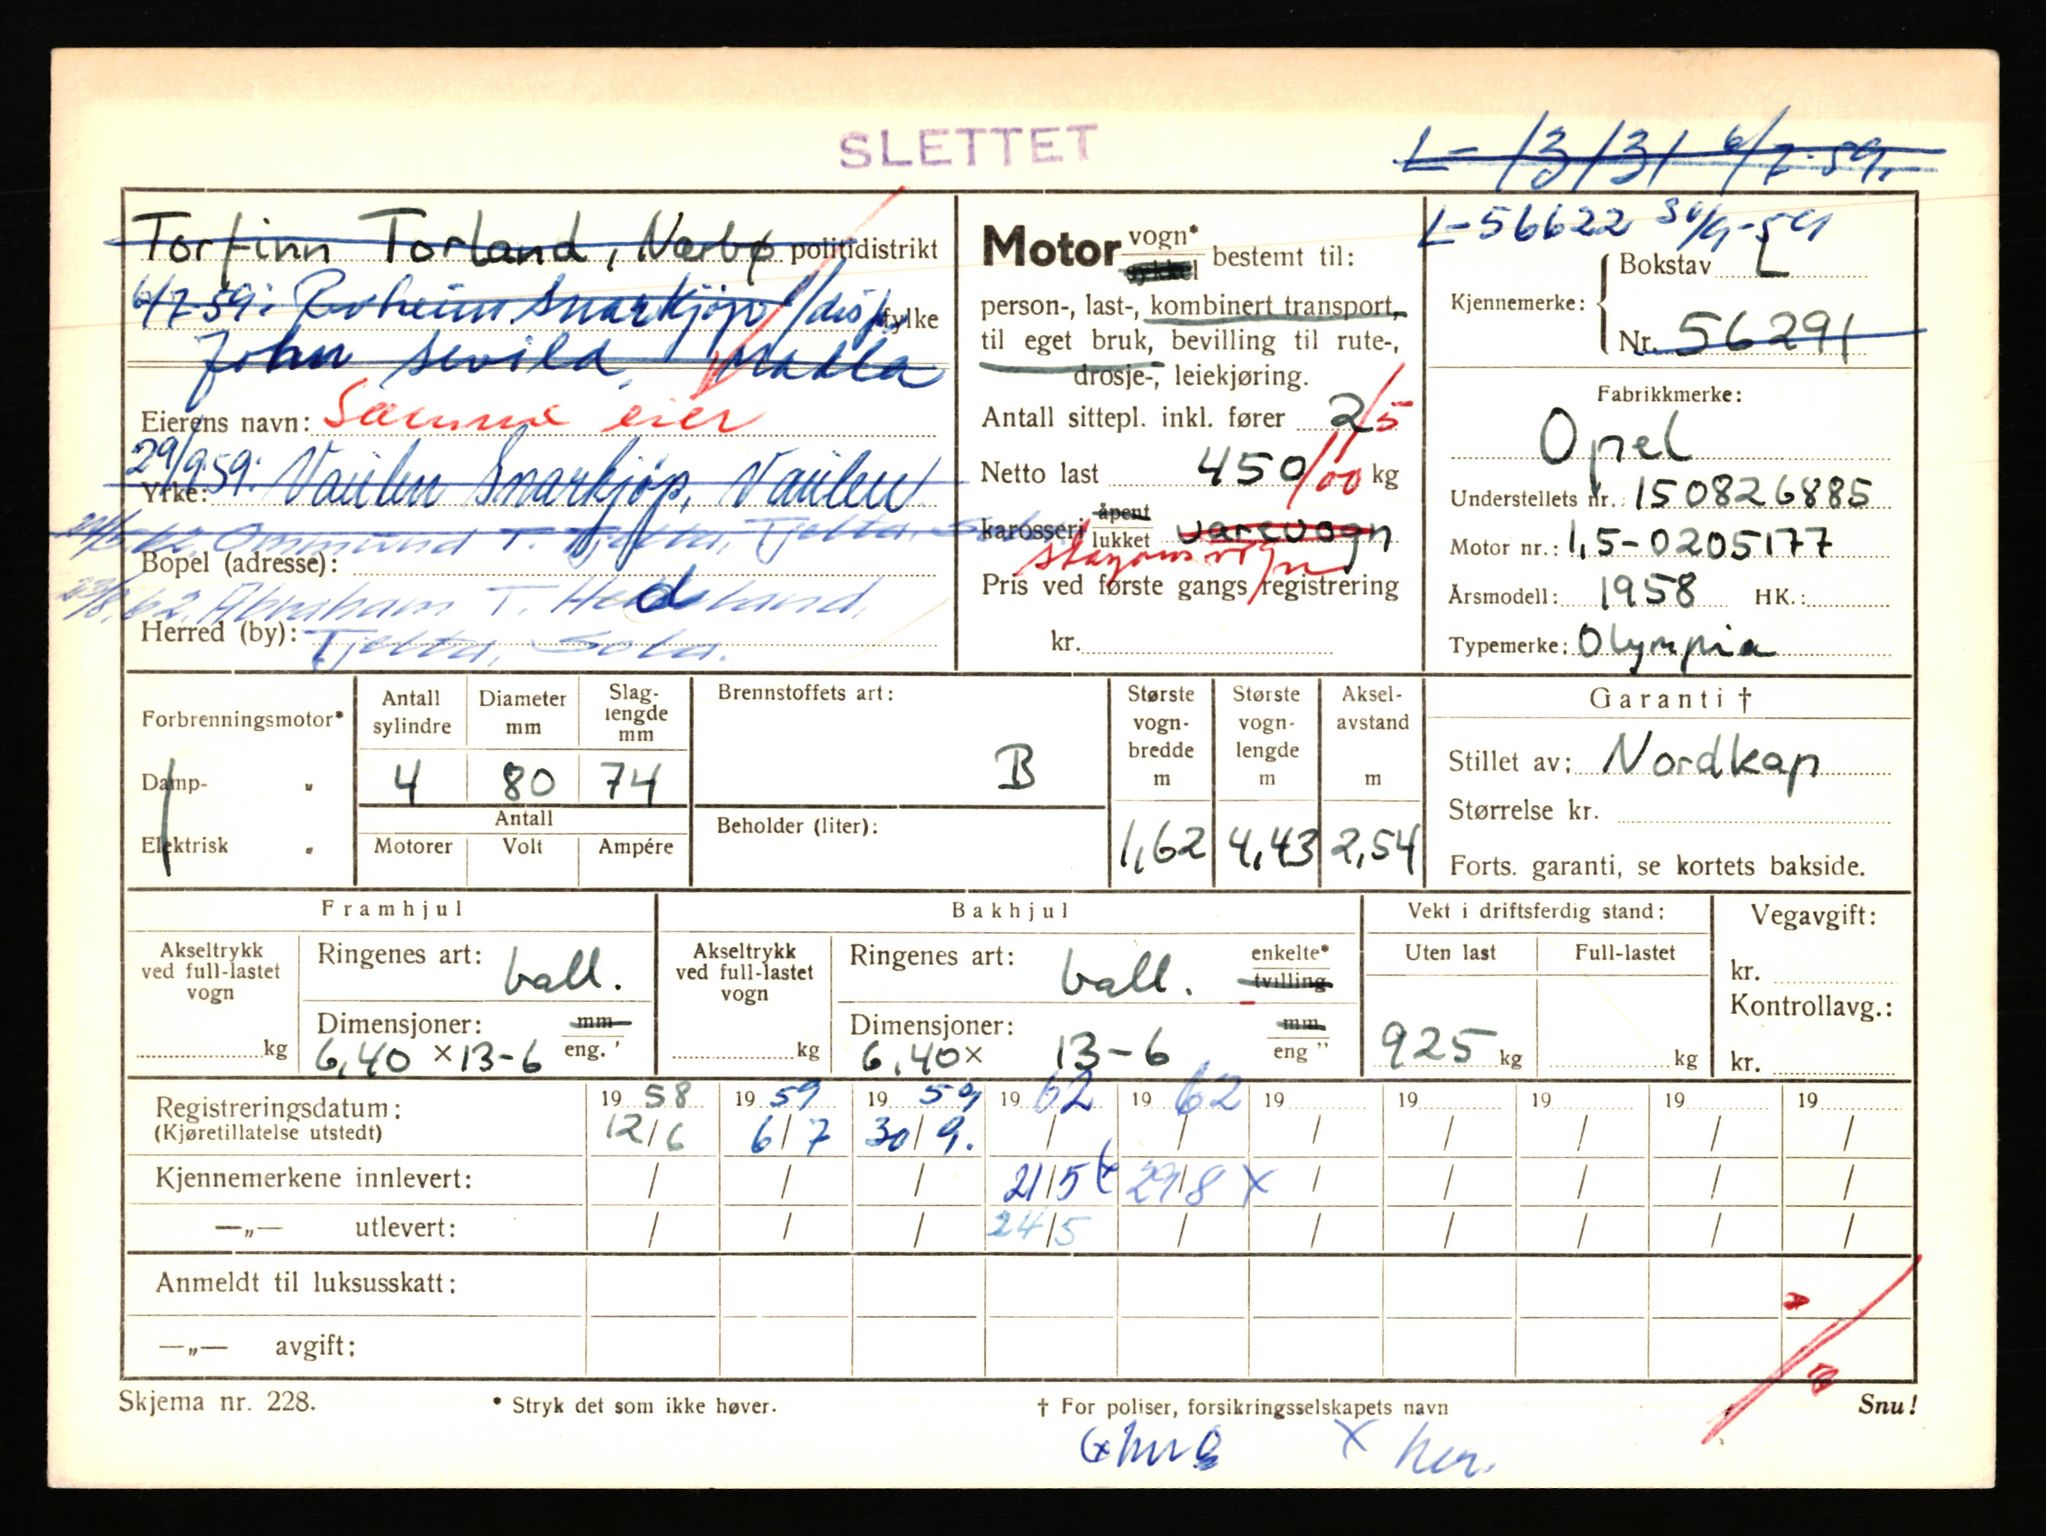 SLETTET
L- 13131 6/7-59.
Torfinn Torland, Nærbø politidistrikt
6/7-59: Snarkjøp v/disp. fylke
John
Eierens navn: Samme eier
29/9.59: Vaulen Snarkjøp, Vaulen
Yrke:
Ommund T. Tjelta, Tjelta, Sola
Bopel (adresse):
23/8.62. Abraham T. Hedland,
Herred (by): Tjelta, Sola.
Motor vogn* sykkel bestemt til:
person-, last-, kombinert transport,
til eget bruk, bevilling til rute-,
drosje-, leiekjøring.
Antall sittepl. inkl. fører 2/5
Netto last 450/100 kg
karosseri åpent lukket varevogn
stasjonsvogn
Pris ved første gangs registrering
kr.
L-56622 30/9-59
Kjennemerke: Bokstav L
Nr. 56291
Fabrikkmerke:
Opel
Understellets nr.: 150826885
Motor nr.: 1,5-0205177
Årsmodell: 1958 HK.:
Typemerke: Olympia
Forbrenningsmotor*
Damp- "
Elektrisk "
Antall sylindre Diameter mm Slag-lengde mm
4 80 74
Antall
Motorer Volt Ampére
Brennstoffets art:
B
Beholder (liter):
Største vogn-bredde m Største vogn-lengde m Aksel-avstand m
1,62 4,43 2,54
Garanti †
Stillet av: Nordkap
Størrelse kr.
Forts. garanti, se kortets bakside.
Framhjul
Akseltrykk ved full-lastet vogn
kg
Ringenes art: ball.
Dimensjoner: mm eng. "
6,40 × 13-6
Bakhjul
Akseltrykk ved full-lastet vogn
kg
Ringenes art: ball. enkelte* tvilling
Dimensjoner: mm eng "
6,40 × 13-6
Vekt i driftsferdig stand:
Uten last Full-lastet
925 kg kg
Vegavgift:
kr.
Kontrollavg.:
kr.
Registreringsdatum: 19 58 19 59 19 59 19 62 19 62 19 19 19 19 19
(Kjøretillatelse utstedt) 12/6 6/7 30/9. / / / / / / /
Kjennemerkene innlevert: / / / 21/5 (x 29/8 x / / / / /
—„— utlevert: / / / 24/5 / / / / / /
Anmeldt til luksusskatt:
—„— avgift:
Skjema nr. 228. * Stryk det som ikke høver. † For poliser, forsikringsselskapets navn Snu!
x her.